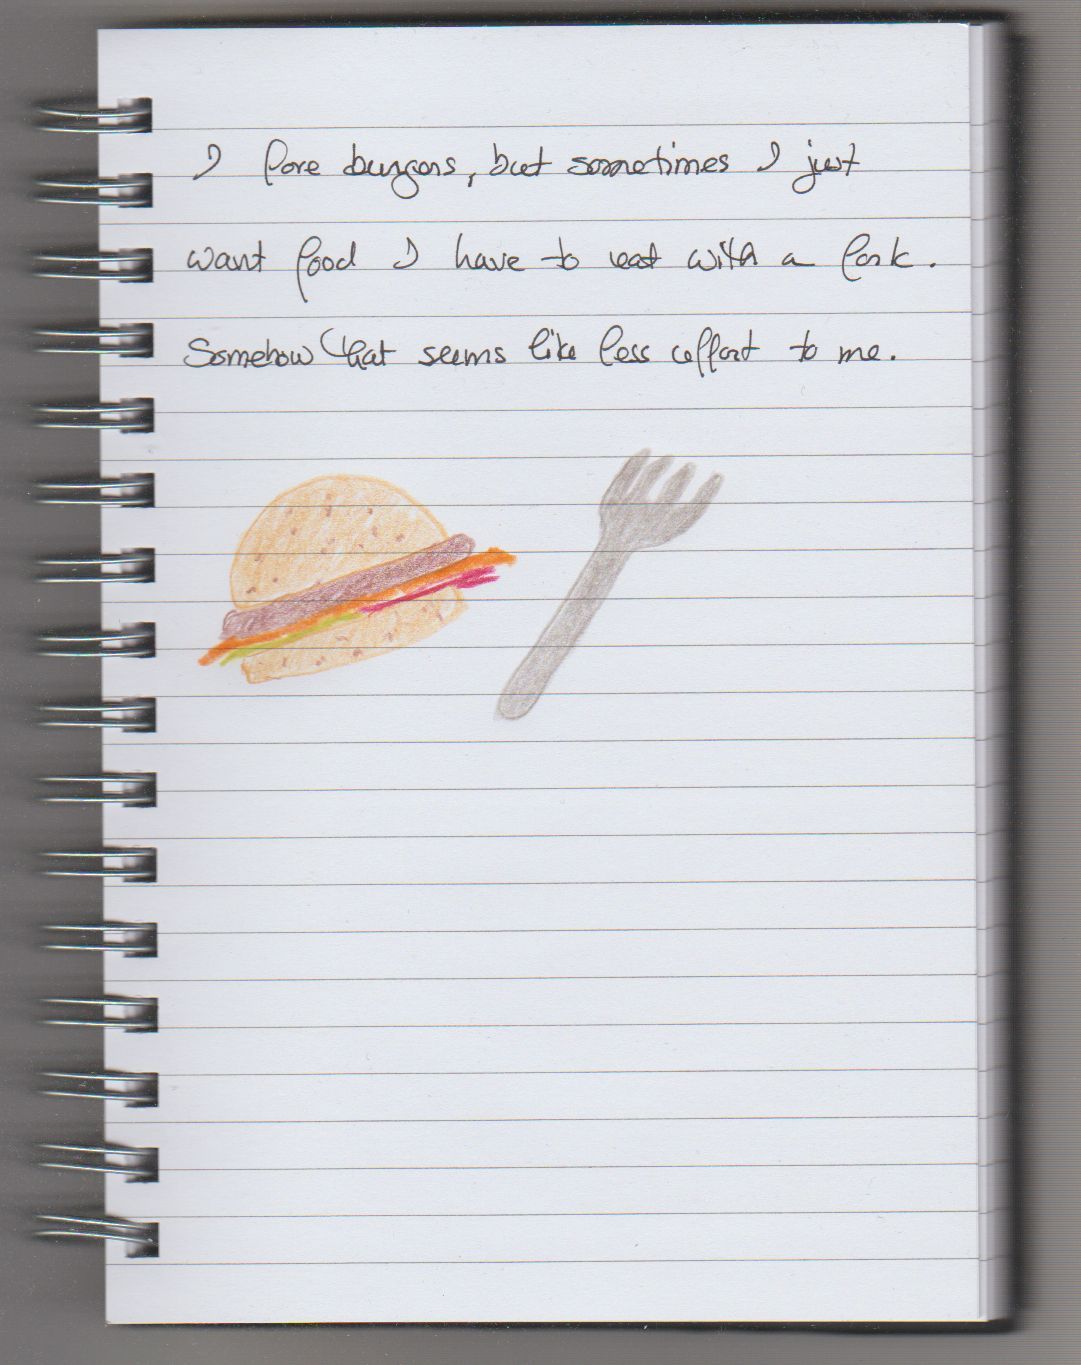 I love burgers, but sometimes I just
want food I have to eat with a fork.
Somehow that seems like less effort to me.